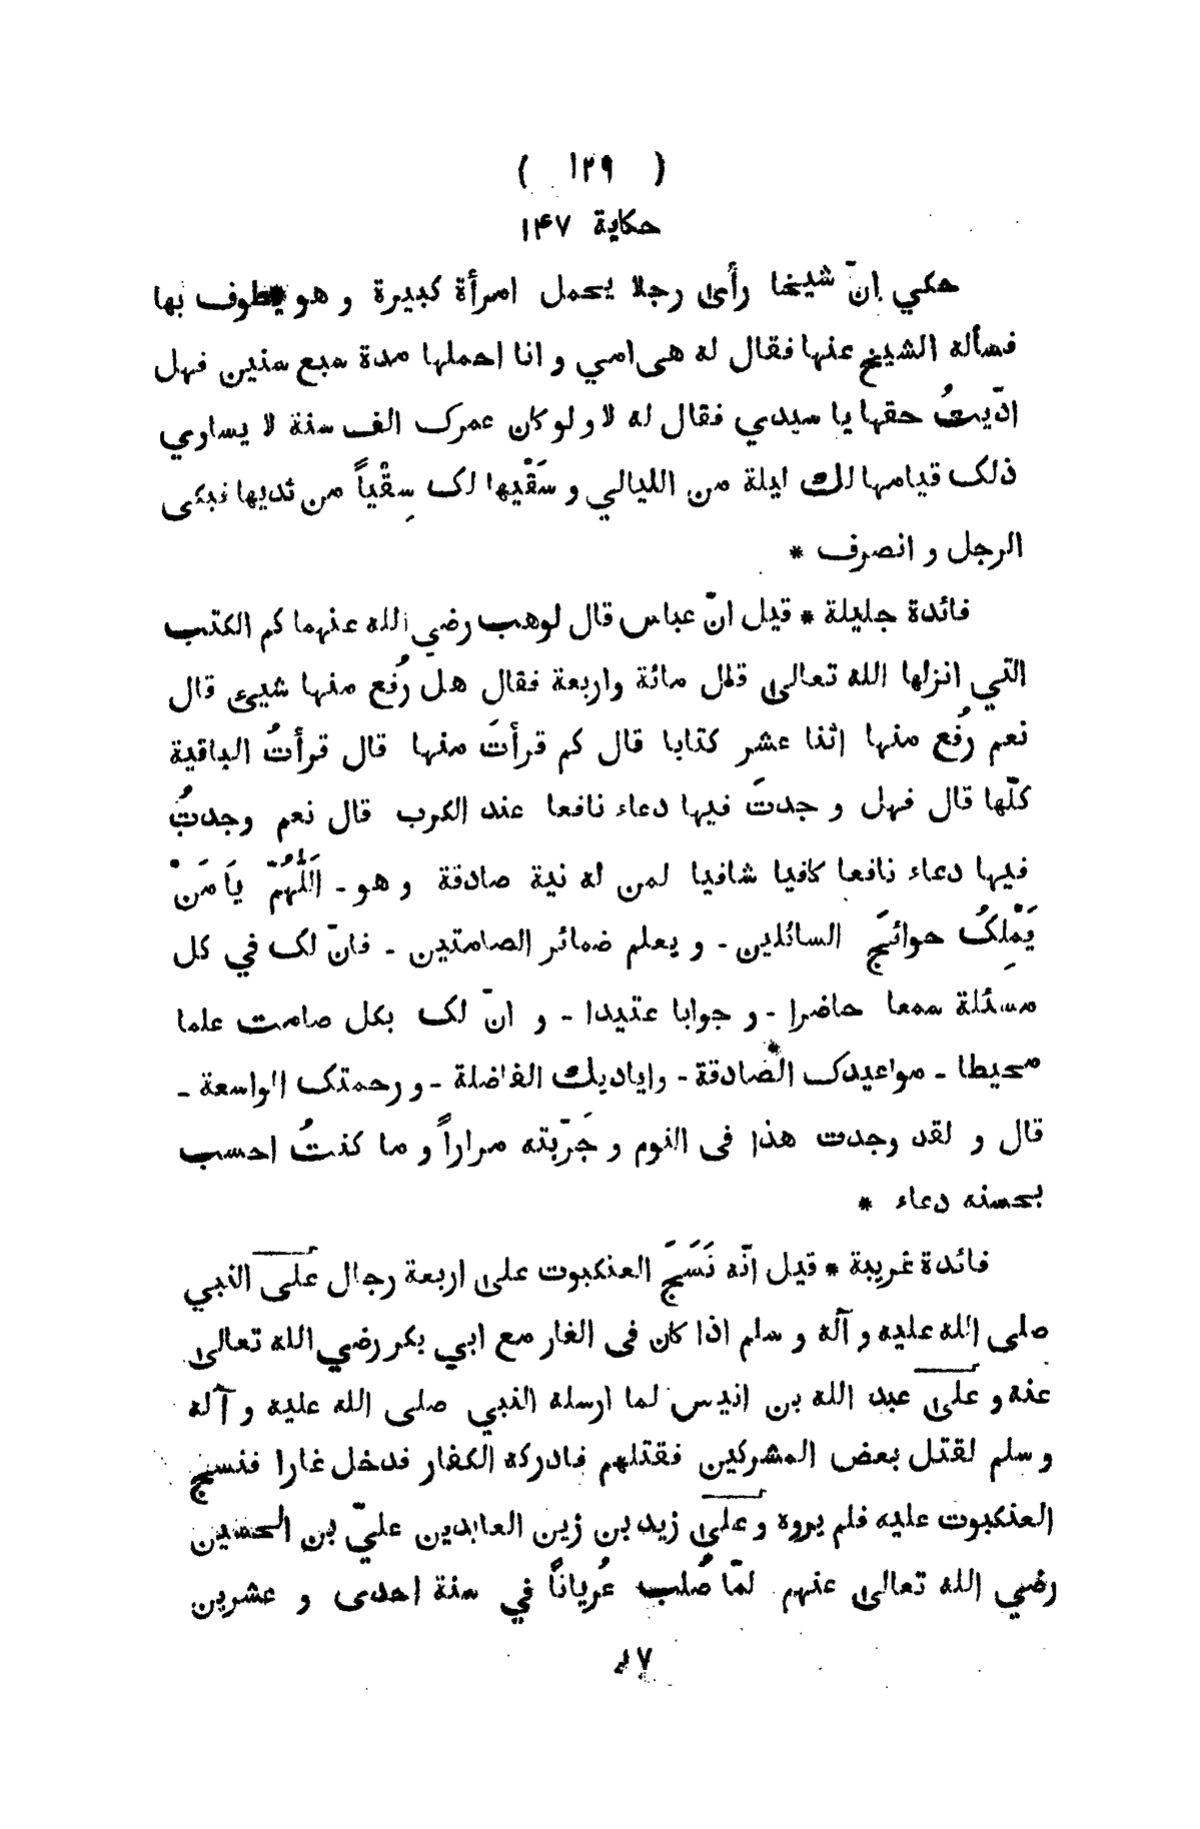 ( ١٢٩ )
حكاية ١۴٧
حكي انّ شيخا رأى رجلا يحمل امرأة كبيرة و هو يطوف بها
فسأله الشيخ عنها فقال له هى امي و انا احملها مدة سبع سنين فهل
ادّيتُ حقها يا سيدي فقال له لا و لو كان عمرک الف سنة لا يساوي
ذلک قيامها لک ليلة من الليالي و سَقْيها لک سِقْياً من ثديها فبكى
الرجل و انصرف *
فائدة جليلة * قيل انّ عباس قال لوهب رضي الله عنهما كم الكتب
التي انزلها الله تعالى قال مائة واربعة فقال هل رُفع منها شيئ قال
نعم رُفع منها اثنا عشر كتابا قال كم قرأتَ منها قال قرأتُ الباقية
كلّها قال فهل و جدتَ فيها دعاء نافعا عند الكرب قال نعم وجدتُ
فيها دعاء نافعا كافيا شافيا لمن له نية صادقة و هو - اَللّٰهُمّ يَا مَنْ
يَمْلِکُ حوائجَ السائلين - و يعلم ضمائر الصامتين - فانّ لک في كل
مسئلة سمعا حاضرا - و جوابا عتيدا - و انّ لک بكل صامت علما
محيطا - مواعيدک الصادقة - واياديک الفاضلة - و رحمتک الواسعة -
قال و لقد وجدت هذا فى النوم و جَرّبته مراراً و ما كنتُ احسب
بحسنه دعاء *
فائدة غريبة * قيل انّه نَسَجَ العنكبوت على اربعة رجال على النبي
صلى الله عليه و آله و سلم اذا كان فى الغار مع ابي بكر رضي الله تعالى
عنه و على عبد الله بن انيس لما ارسله النبي صلى الله عليه و آله
و سلم لقتل بعض المشركين فقتلهم فادركه الكفار فدخل غارا فنسج
العنكبوت عليه فلم يروه و على زيد بن زين العابدين عليّ بن الحسين
رضي الله تعالى عنهم لمّا صُلب عُرياناً في سنة احدى و عشرين
١٧